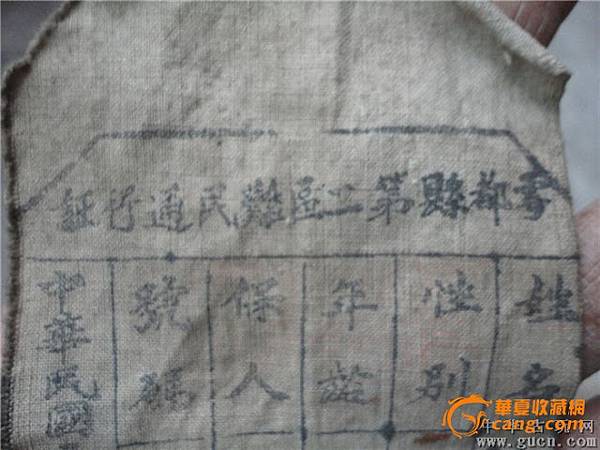 雩都縣第二區難民通行証
姓名
性別
年齡
保人
號碼
中華民國
華夏收藏網
cang.com
中华古玩网
www.gucn.com